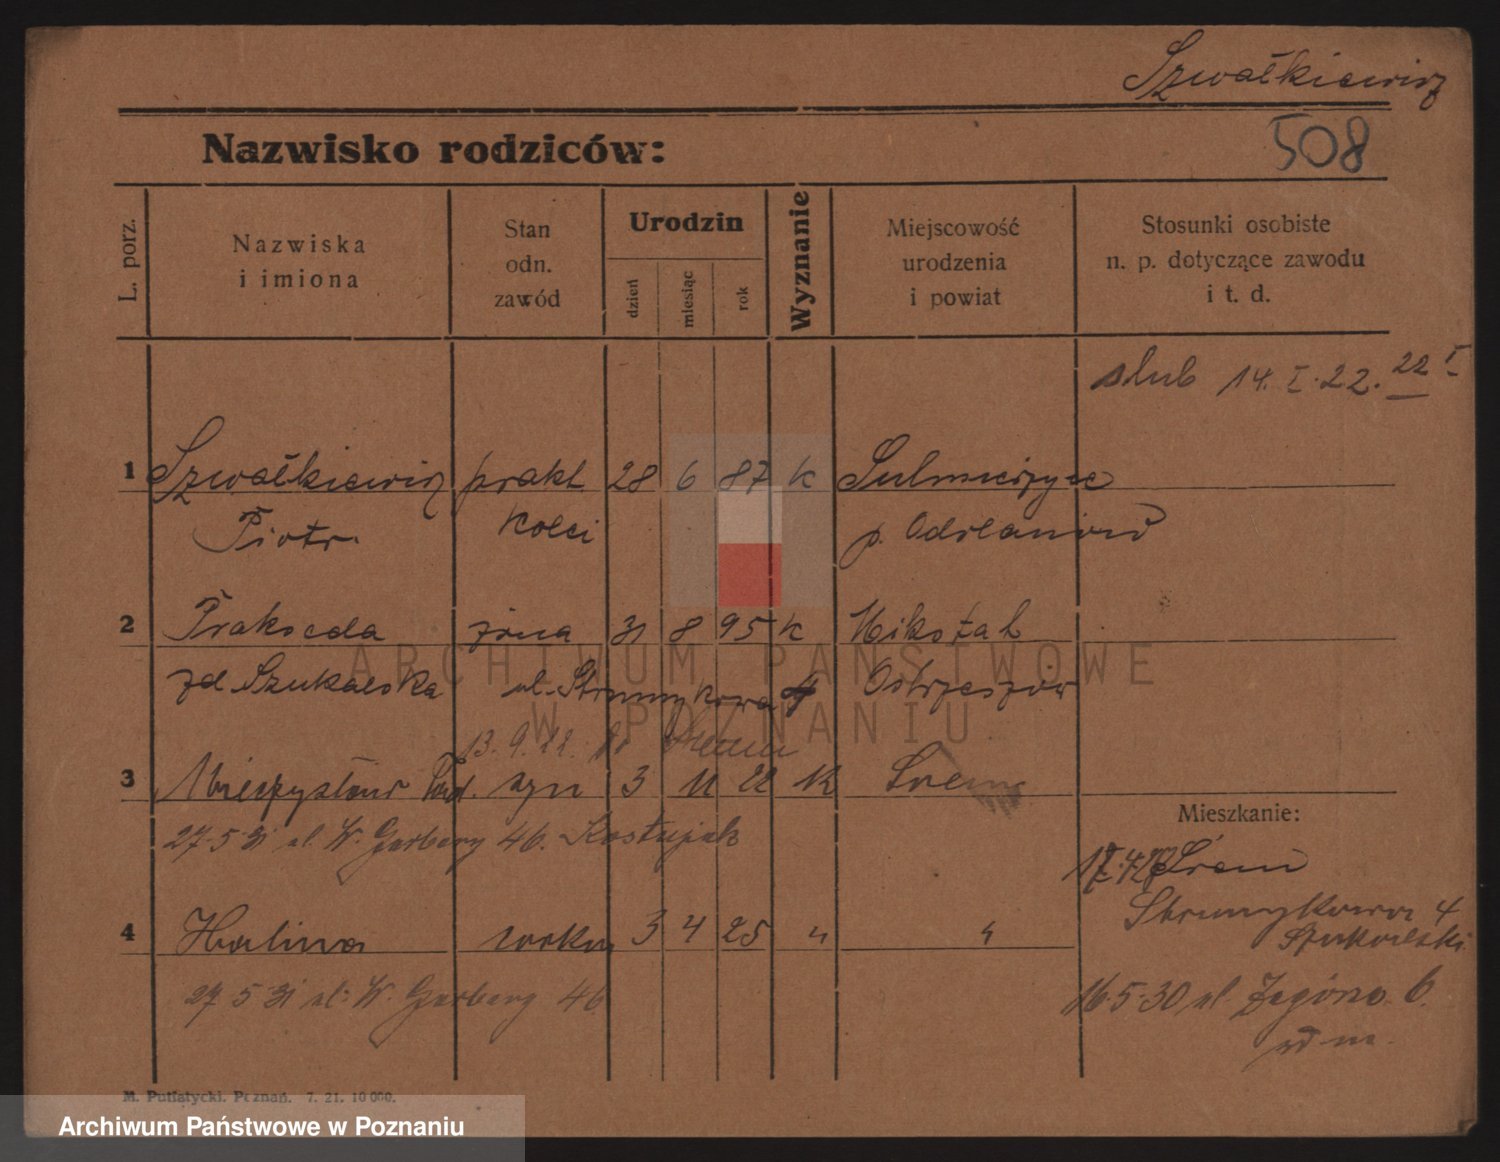 Szwałkiewicz
Nazwisko rodziców:
508
L. porz.
Nazwiska
i imiona
Stan
odn.
zawód
Urodzin
dzień
miesiąc
rok
Wyznanie
Miejscowość
urodzenia
i powiat
Stosunki osobiste
n. p. dotyczące zawodu
i t. d.
slub 14. I. 22. 22 I
1 Szwałkiewicz prakt 28 6 87 k Sulmierzyce
Piotr kolei p. Odolanów
2 Prakseda żona 31 8 95 k Mikstat
zd Szukalska ul. Strumykowa 4 Ostrzeszów
13. 9. 22
3 Mieczysław Tad. syn 3 11 22 k Śrem
27 5 31 ul W. Garbary 46.
Mieszkanie:
Śrem
Strumykowa 4
Szukalski
4 Halina corka 3 4 25 " "
27 5 31 ul. W. Garbary 46
16.5.30 ul 6.
M. Putiatycki. Poznań. 7. 21. 10 000.
ARCHIWUM PAŃSTWOWE
W POZNANIU
Archiwum Państwowe w Poznaniu